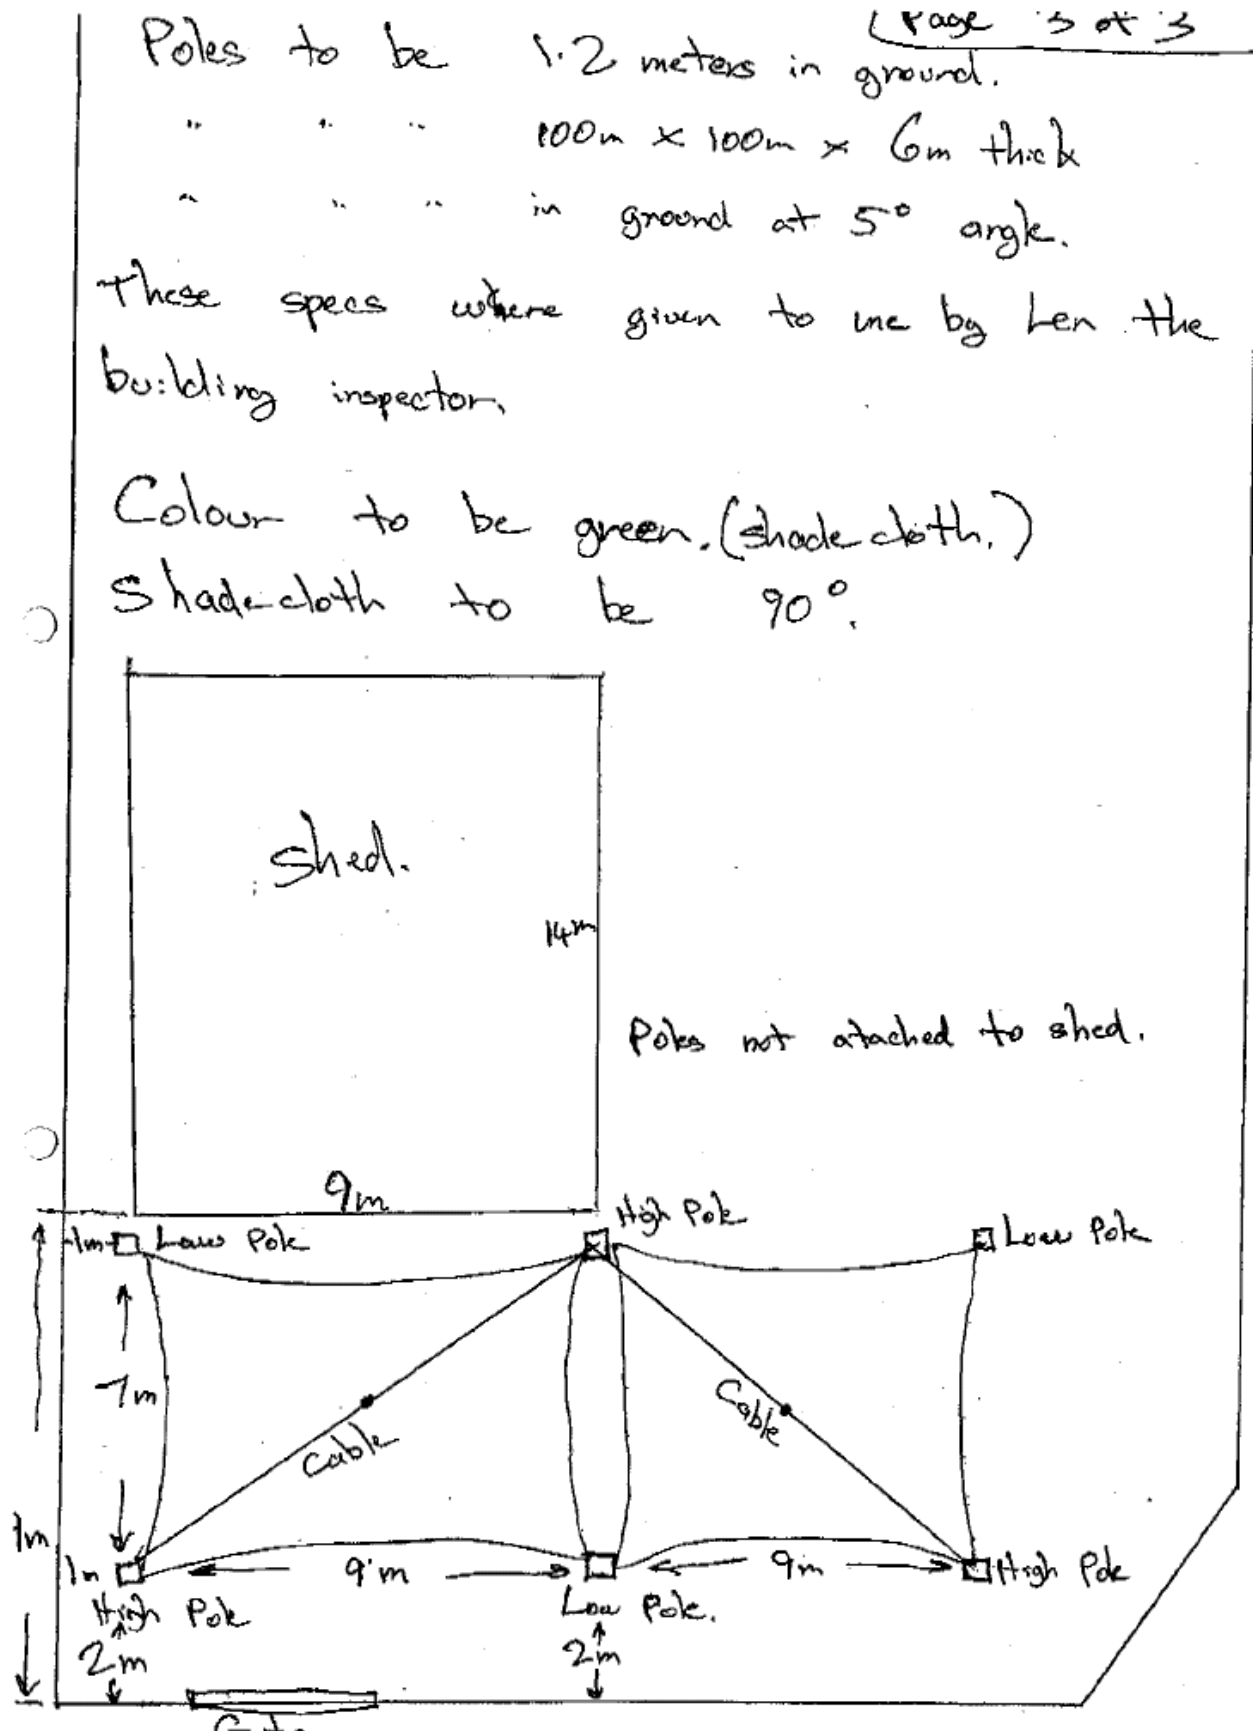 Page 3 of 3
Poles to be 1.2 meters in ground.
" " " 100m x 100m x 6m thick
" " " in ground at 5° angle.
These specs where given to me by Len the
building inspector.
Colour to be green. (shade cloth.)
Shadecloth to be 90°.
shed.
14m
Poles not atached to shed.
9m
High Pole
1m Low Pole
Low Pole
7m
Cable
Cable
1m
1m
9m
9m
High Pole
High Pole
Low Pole.
2m
2m
Gate